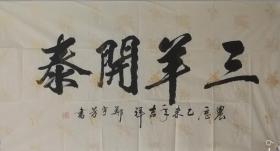 三羊開泰
農歷乙未年吉祥 鄭守芳書